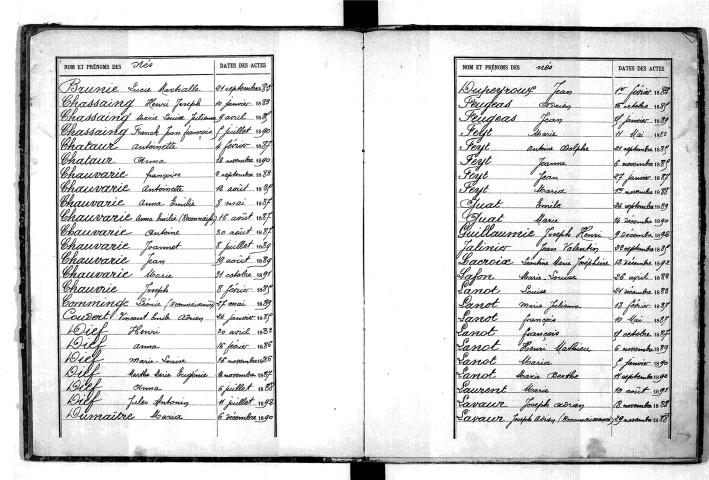 NOM ET PRÉNOMS DES nés DATES DES ACTES
Brunie Lucie Martialle 21 septembre 1883
Chassaing Henri Joseph 10 janvier 1889
Chassaing Marie Louise Julienne 9 avril 1885
Chassaing Franck Jean François 5 juillet 1890
Chataur Antoinette 4 février 1887
Chataur Anna 12 novembre 1890
Chauvarie Françoise 2 septembre 1883
Chauvarie Antoinette 12 août 1885
Chauvarie Anna Emilie 8 mai 1887
Chauvarie Anna Emilie (Reconnaiss) 15 août 1887
Chauvarie Antoine 30 août 1887
Chauvarie Joannet 8 juillet 1889
Chauvarie Jean 19 août 1889
Chauvarie Marie 21 octobre 1891
Chauvrie Joseph 8 février 1885
Comming Léonie (Reconnaissance) 27 mai 1889
Coudert Vincent Emile Adrien 24 janvier 1885
Dief Henri 20 avril 1883
Dief Anna 15 février 1886
Dief Marie-Louise 16 novembre 1886
Dief Marthe Marie Eugénie 16 novembre 1887
Dief Anna 6 juillet 1888
Dief Jules Antonin 11 juillet 1892
Dumaître Maria 6 décembre 1890
NOM ET PRÉNOMS DES nés DATES DES ACTES
Dupeyroux Jean 1er février 1888
Feugeas Adrien 15 octobre 1885
Feugeas Jean 9 janvier 1889
Feyt Marie 11 Mai
Feyt Antoine Adolphe 21 septembre 1885
Feyt Jeanne 6 novembre 1885
Feyt Jean 27 janvier 1887
Feyt Maria 1er novembre 1888
Guat Emile 26 septembre 1889
Guat Marie 16 décembre 1890
Guillaumie Joseph Henri 9 décembre 1892
Jalinier Jean Valentin 22 septembre 1885
Lacroix Léontine Marie Joséphine 12 décembre 1892
Lafon Marie-Louise 26 avril 1884
Lanot Louise 21 décembre 1883
Lanot Marie Julienne 18 février 1887
Lanot François 10 Mai 1887
Lanot François 9 octobre 1887
Lanot Henri Mathieu 6 novembre 1889
Lanot Maria 5 janvier 1890
Lanot Marie Berthe 11 septembre 1892
Laurent Maria 10 août 1891
Lavaur Joseph Adrien 18 novembre 1888
Lavaur Joseph Adrien (Reconnaissance) 29 novembre 1888